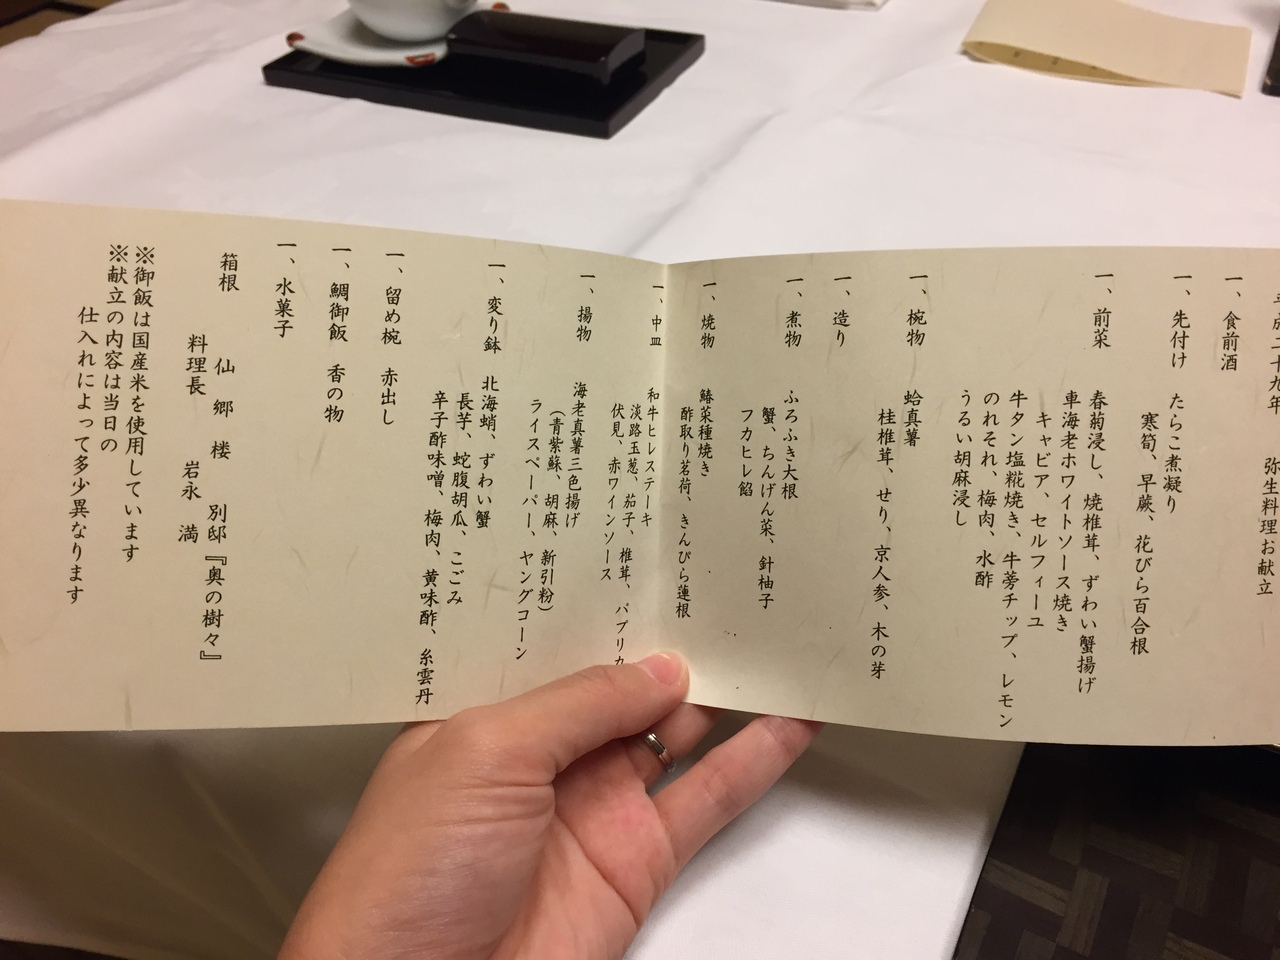 平成二十九年 弥生料理お献立
一、食前酒
一、先付け たらこ煮凝り
寒筍、早蕨、花びら百合根
一、前菜 春菊浸し、焼椎茸、ずわい蟹揚げ
車海老ホワイトソース焼き
キャビア、セルフィーユ
牛タン塩糀焼き、牛蒡チップ、レモン
のれそれ、梅肉、水酢
うるい胡麻浸し
一、椀物 蛤真薯
桂椎茸、せり、京人参、木の芽
一、造り
一、煮物 ふろふき大根
蟹、ちんげん菜、針柚子
フカヒレ餡
一、焼物 鰆菜種焼き
酢取り茗荷、きんぴら蓮根
一、中皿 和牛ヒレステーキ
淡路玉葱、茄子、椎茸、パプリカ
伏見、赤ワインソース
一、揚物 海老真薯三色揚げ
（青紫蘇、胡麻、新引粉）
ライスペーパー、ヤングコーン
一、変り鉢 北海蛸、ずわい蟹
長芋、蛇腹胡瓜、こごみ
辛子酢味噌、梅肉、黄味酢、糸雲丹
一、留め椀 赤出し
一、鯛御飯 香の物
一、水菓子
箱根 仙郷楼 別邸『奥の樹々』
料理長 岩永 満
※御飯は国産米を使用しています
※献立の内容は当日の
仕入れによって多少異なります